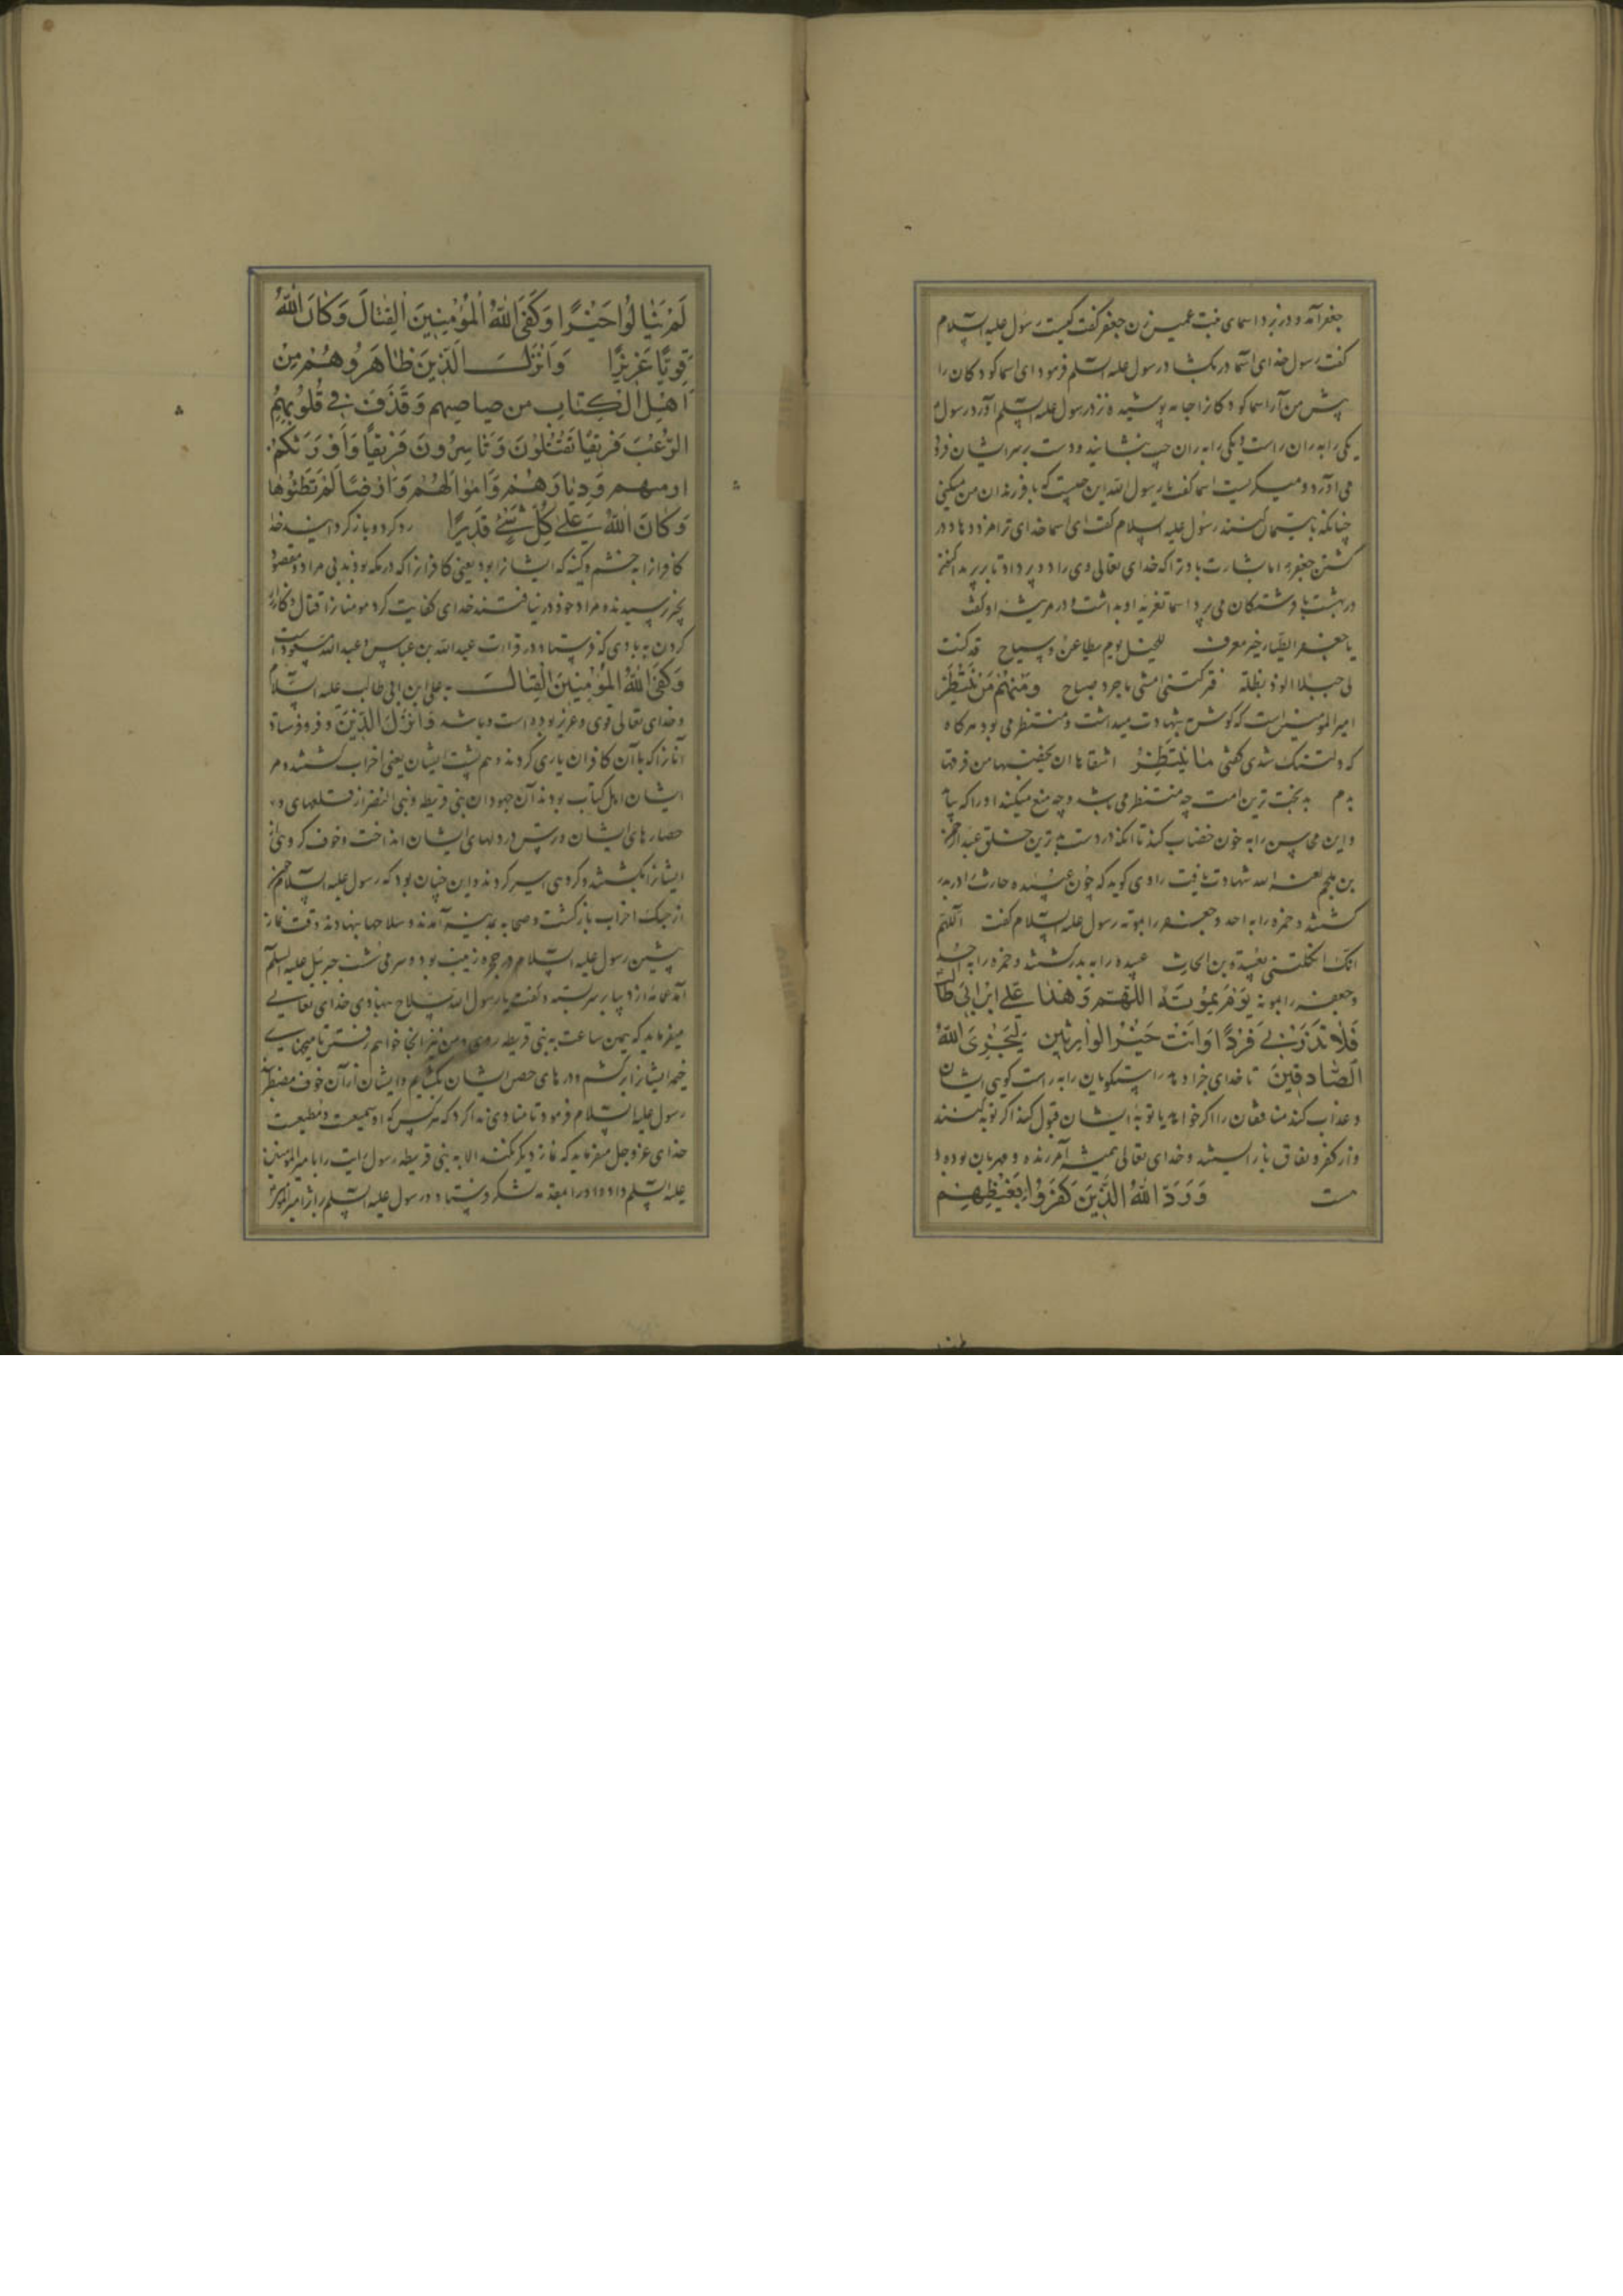 جعفر آمد و در بزد اسمای بنت عمیس زن جعفر گفت کیست رسول علیه السلام
گفت رسول خدای اسما در بگشاد رسول علیه السلم فرمود ای اسما کودکان را
پیش من آر اسما کودکانرا جامه پوشیده نزد رسول علیه السلم آورد رسول
یکی را بر ران راست و یکی را بر ران چپ بنشانید و دست بر سر ایشان فرو
می آورد و میگریست اسما گفت یا رسول الله این چیست که با فرزندان من میکنی
چنانکه با یتیمان کنند رسول علیه السلام گفت ای اسما خدای ترا مزد دهاد در
کشتن جعفر اما بشارت باد ترا که خدای تعالی وی را دو پر داد تا بر پرد
در بهشت با فرشتگان می پرد اسما تعزیه او بداشت و در مرثیه او گفت
یا جعفر الطیار خیر مصرف للخیل یوم مطاعن و سیاح قد کنت
لی جبلا الوذ بظله فترکتنی امشی باجرد ضاح وَمِنْهُمْ مَنْ يَنْتَظِرُ
امیر المومنین است که گوش بشهادت میداشت و منتظر می بود هر گاه
که دلتنگ شدی گفتی مَا يَنْتَظِرُ اشقاها ان یخضبها من فوقها
بدم بدبخت ترین امت چه منتظر می باشد و چه منع میکند او را که بیاید
و این محاسن را به خون خضاب کند تا آنکه در دست بدترین خلق عبد الرحمن
بن ملجم لعنه الله شهادت یافت راوی گوید که چون عبیده حارث را در بدر
کشتند و حمزه را به احد و جعفر را بموته رسول علیه السلام گفت اللهم
انک اثکلتنی بعبیدة بن الحارث عبیده را به بدر کشتند و حمزه را به احد
و جعفر را بموته يَوْمَ مُوتَة اللّهُمَّ وَهٰذا عَلِيُّ ابْنُ ابِي طالب
فَلَا تَذَرْنِي فَرْدًا وَانْتَ خَيْرُ الوارِثِين لِيَجْزِيَ اللّٰهُ
الصَّادِقِينَ تا خدای جزا دهد راستگویان را به راست گویی ایشان
و عذاب کند منافقان را اگر خواهد یا توبه ایشان قبول کند اگر توبه کنند
و از کفر و نفاق باز ایستند و خدای تعالی همیشه آمرزنده و مهربان بوده
ست وَرَدَّ اللّٰهُ الَّذِينَ كَفَرُوا بِغَيْظِهِمْ
لَمْ يَنَالُوا خَيْرًا وَكَفَى اللّٰهُ الْمُؤْمِنِينَ الْقِتَالَ وَكَانَ اللّٰهُ
قَوِيًّا عَزِيزًا وَاَنْزَلَ الَّذِينَ ظَاهَرُوهُمْ مِنْ
اَهْلِ الْكِتَابِ مِن صَيَاصِيهِم وَقَذَفَ فِي قُلُوبِهِمُ
الرُّعْبَ فَرِيقًا تَقْتُلُونَ وَتَأسِرُونَ فَرِيقًا وَاَوْرَثَكُمْ
ارضهم وَدِيَارَهُمْ وَاَمْوَالَهُمْ وَاَرْضًا لَمْ تَطَئُوهَا
وَكَانَ اللّٰهُ عَلَى كُلِّ شَيْءٍ قَدِيرًا رد کرد و باز گردانید خدا
کافرانرا به خشم و کینه که ایشانرا بود یعنی کافرانرا که در مکه بودند بی مراد و مقصود
بخیر نرسیدند و مراد خود در نیافتند خدای کفایت کرد مومنانرا قتال و کارزار
کردن به بادی که فرستاد و در قراءت عبد الله بن عباس و عبد الله مسعود است
وَكَفَى اللّٰهُ الْمُؤْمِنِينَ الْقِتَالَ به علی ابن ابی طالب علیه السلام
و خدای تعالی قوی و عزیز بوده است و باشد وَاَنْزَلَ الَّذِينَ و فرو فرستاد
آنانرا که با آن کافران یاری کردند و هم پشت ایشان یعنی احزاب گشتند و مر
ایشان اهل کتاب بودند آن جهودان بنی قریظه و بنی النضر از قلعهای و
حصارهای ایشان و ترس در دلهای ایشان انداخت و خوف گروهی از
ایشانرا بکشتند و گروهی اسیر کردند و این چنان بود که رسول علیه السلام چون
از جنگ احزاب بازگشت و صحابه بمدینه آمدند و سلاحها بنهادند وقت نماز
پیشین رسول علیه السلام در حجره زینب بود و سر می شست جبرئیل علیه السلم
آمد عمامه از دیبا بر سر بسته و گفت یا رسول الله سلاح بنهادی خدای تعالی
میفرماید که همین ساعت به بنی قریظه روی و من نیز آنجا خواهم رفتن تا میخهای
خیمه ایشانرا برکنم و درهای حصن ایشان بگشایم و ایشان از آن خوف مضطرب
رسول علیه السلام فرمود تا منادی ندا کرد که هر کس که او سمیعست و مطیعست
خدای عز و جل میفرماید که نماز دیگر نکند الا به بنی قریظه رسول رایت را بامیر المومنین
علیه السلم داد و او را بمقدمه لشکر فرستاد و رسول علیه السلم بر اثر امیر المومنین